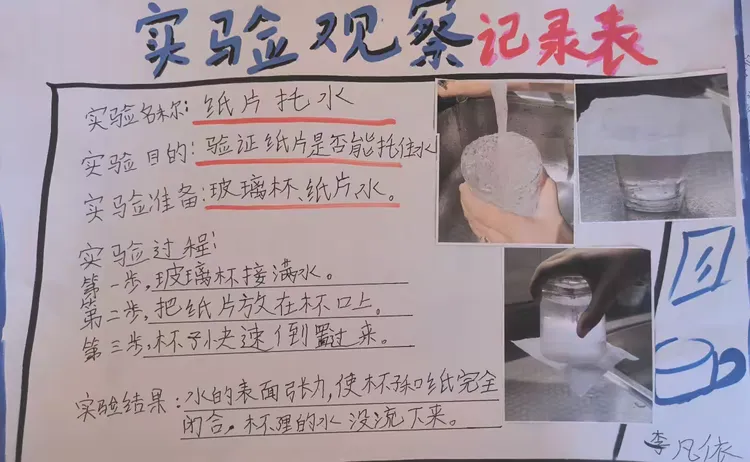 实验观察记录表
实验名称:纸片托水
实验目的:验证纸片是否能托住水
实验准备:玻璃杯、纸片、水。
实验过程:
第一步,玻璃杯接满水。
第二步,把纸片放在杯口上。
第三步,杯子快速倒置过来。
实验结果:水的表面张力,使杯子和纸完全
闭合,杯理的水没流下来。
李凡依